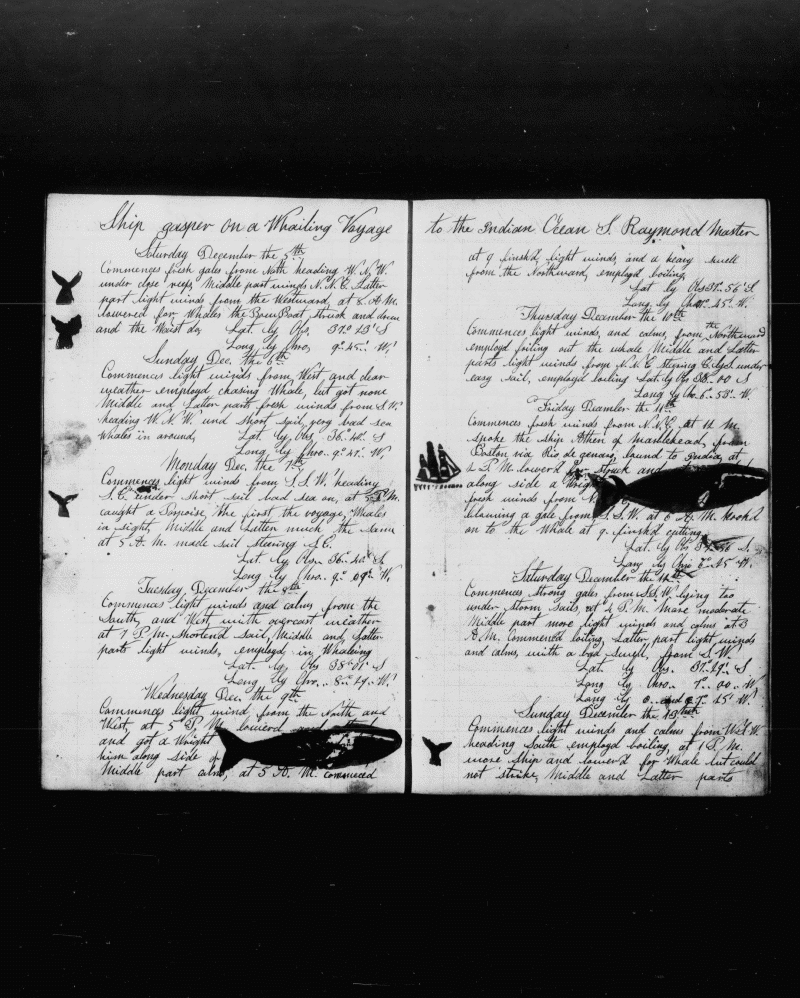 Ship gasper on a Whailing Voyage
Saturday December the 5th
Commences fresh gales from Noth heading W. N. W.
under close reefs, Middle part winds N. N. E. Latter
part light winds from the Westward, at 8. A. M.
lowered for Whales the Bow Boat, struck and drew
and the Waist do, Lat. by Obs, 37° 23' S
Long by Chro, 9° 45' W'
Sunday Dec. the 6th
Commences light winds from West and clear
weather employd chasing Whale, but got none
Middle and Latter parts fresh winds from S. W.
heading W. N. W. und short sail, very bad sea
Whales in around, Lat. by Obs, 36° 42' S
Long by Chro. 9° 47' W'
Monday Dec. the 7th
Commences light winds from S. S. W. heading
S. E. under short sail bad sea on, at P. M.
caught a Porpoise, the first the voyage, Whales
in sight, Middle and Latter much the same
at 5 A. M. made sail steering S. E.
Lat. by Obs. 36° 40' S
Long by Chro. 9° 09' W,
Tuesday December the 8th
Commences light winds and calms from the
South, and West with overcast weather
at 7 P. M. shortend Sail, Middle and Latter
parts light winds, employd in Whaleing
Lat by Obs 38° 01' S
Long by Chro.. 8° 29. W.'
Wednesday Dec, the 9th
Commences light wind from the South and
West, at 5 P. M. lowerd
and got a Wright
him along side
Middle part calm, at 5 A. M. commenced
to the Indian Ocean S. Raymond Master
at 9 finish'd light winds, and a heavy swell
from the Northward, employd boiling,
Lat by Obs 37° 56' S
Long. by Chro 45' W.
Thursday December the 10th
Commences light winds, and calms, from the Northward
employd boiling out the whale Middle and Latter
parts light winds from N. N. E steering E. by S. under
easy sail, employd boiling Lat. by Obs 38° 00 S
Long by Chro. 6° 58' W.
Friday December the 11th
Commences fresh winds from at 11 M.
spoke the ship Athen of Marblehead, from
Boston via Rio de genairo, bound to India, at
2 P. M. lower'd struck and
along side a Wright
fresh winds from
blowing a gale from S. S. W. at 6 A. M. hook'd
on to the Whale at 9. finish'd cutting
Lat. by Obs S.
Long by Chro 45 W.
Saturday December the 12th
Commences strong gales from S. S. W. lying too
under storm sails, at 4 P. M. More moderate
Middle part more light winds and calms, at 3
A. M. Commenced boiling, Latter part light, winds
and calms, with a bad swell, from S. W.
Lat. by Obs. 37° 29' S
Long by Chro. 7° 00 W
Long by 7° 25' W'
Sunday December the 13th
Commences light winds and calms from West.
heading South employd boiling, at 1 P. M.
wore ship and lower'd for Whale but could
not strike, Middle and Latter parts